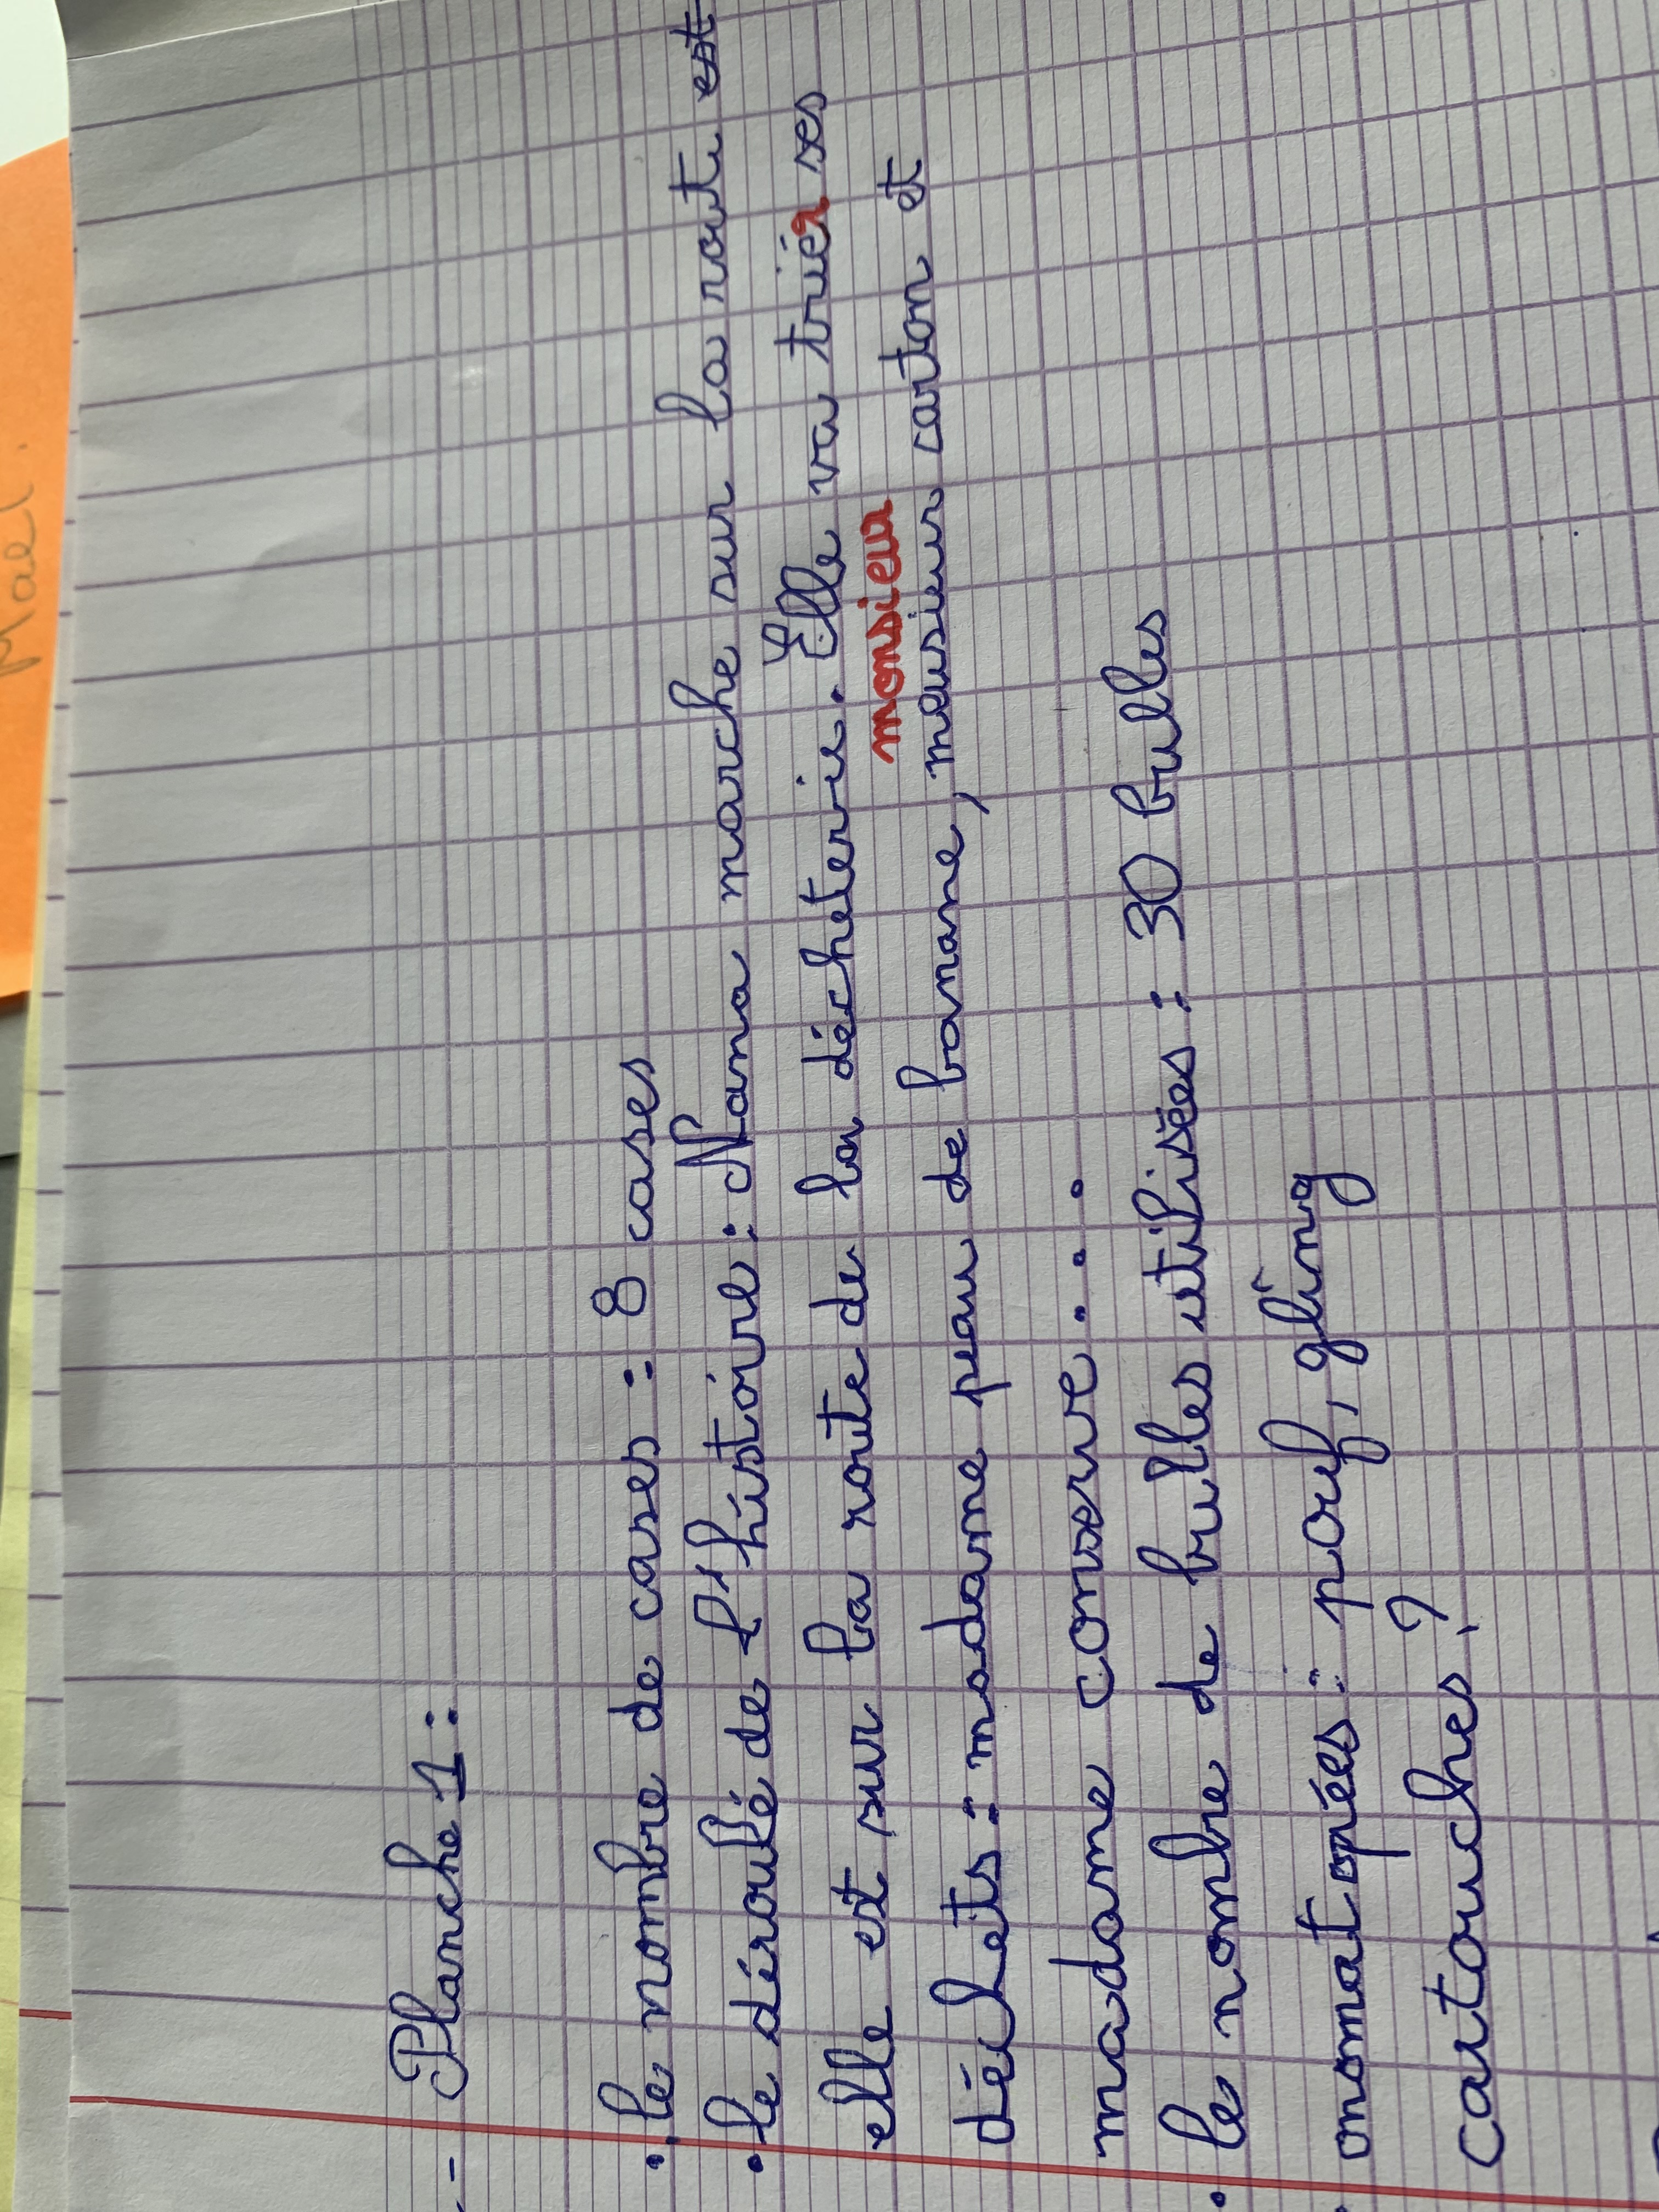 Mael.
- Planche 1 :
• le nombre de cases : 8 cases
• le déroulé de l'histoire : Nana marche sur la route est
elle est sur la route de la décheterie. Elle va triér ses
monsieur
déchets : madame peau de banane, meusieur carton et
madame conserve . . .
• le nombre de bulles utilisées : 30 bulles
• onomatopées : pouf, gling
cartouches ?